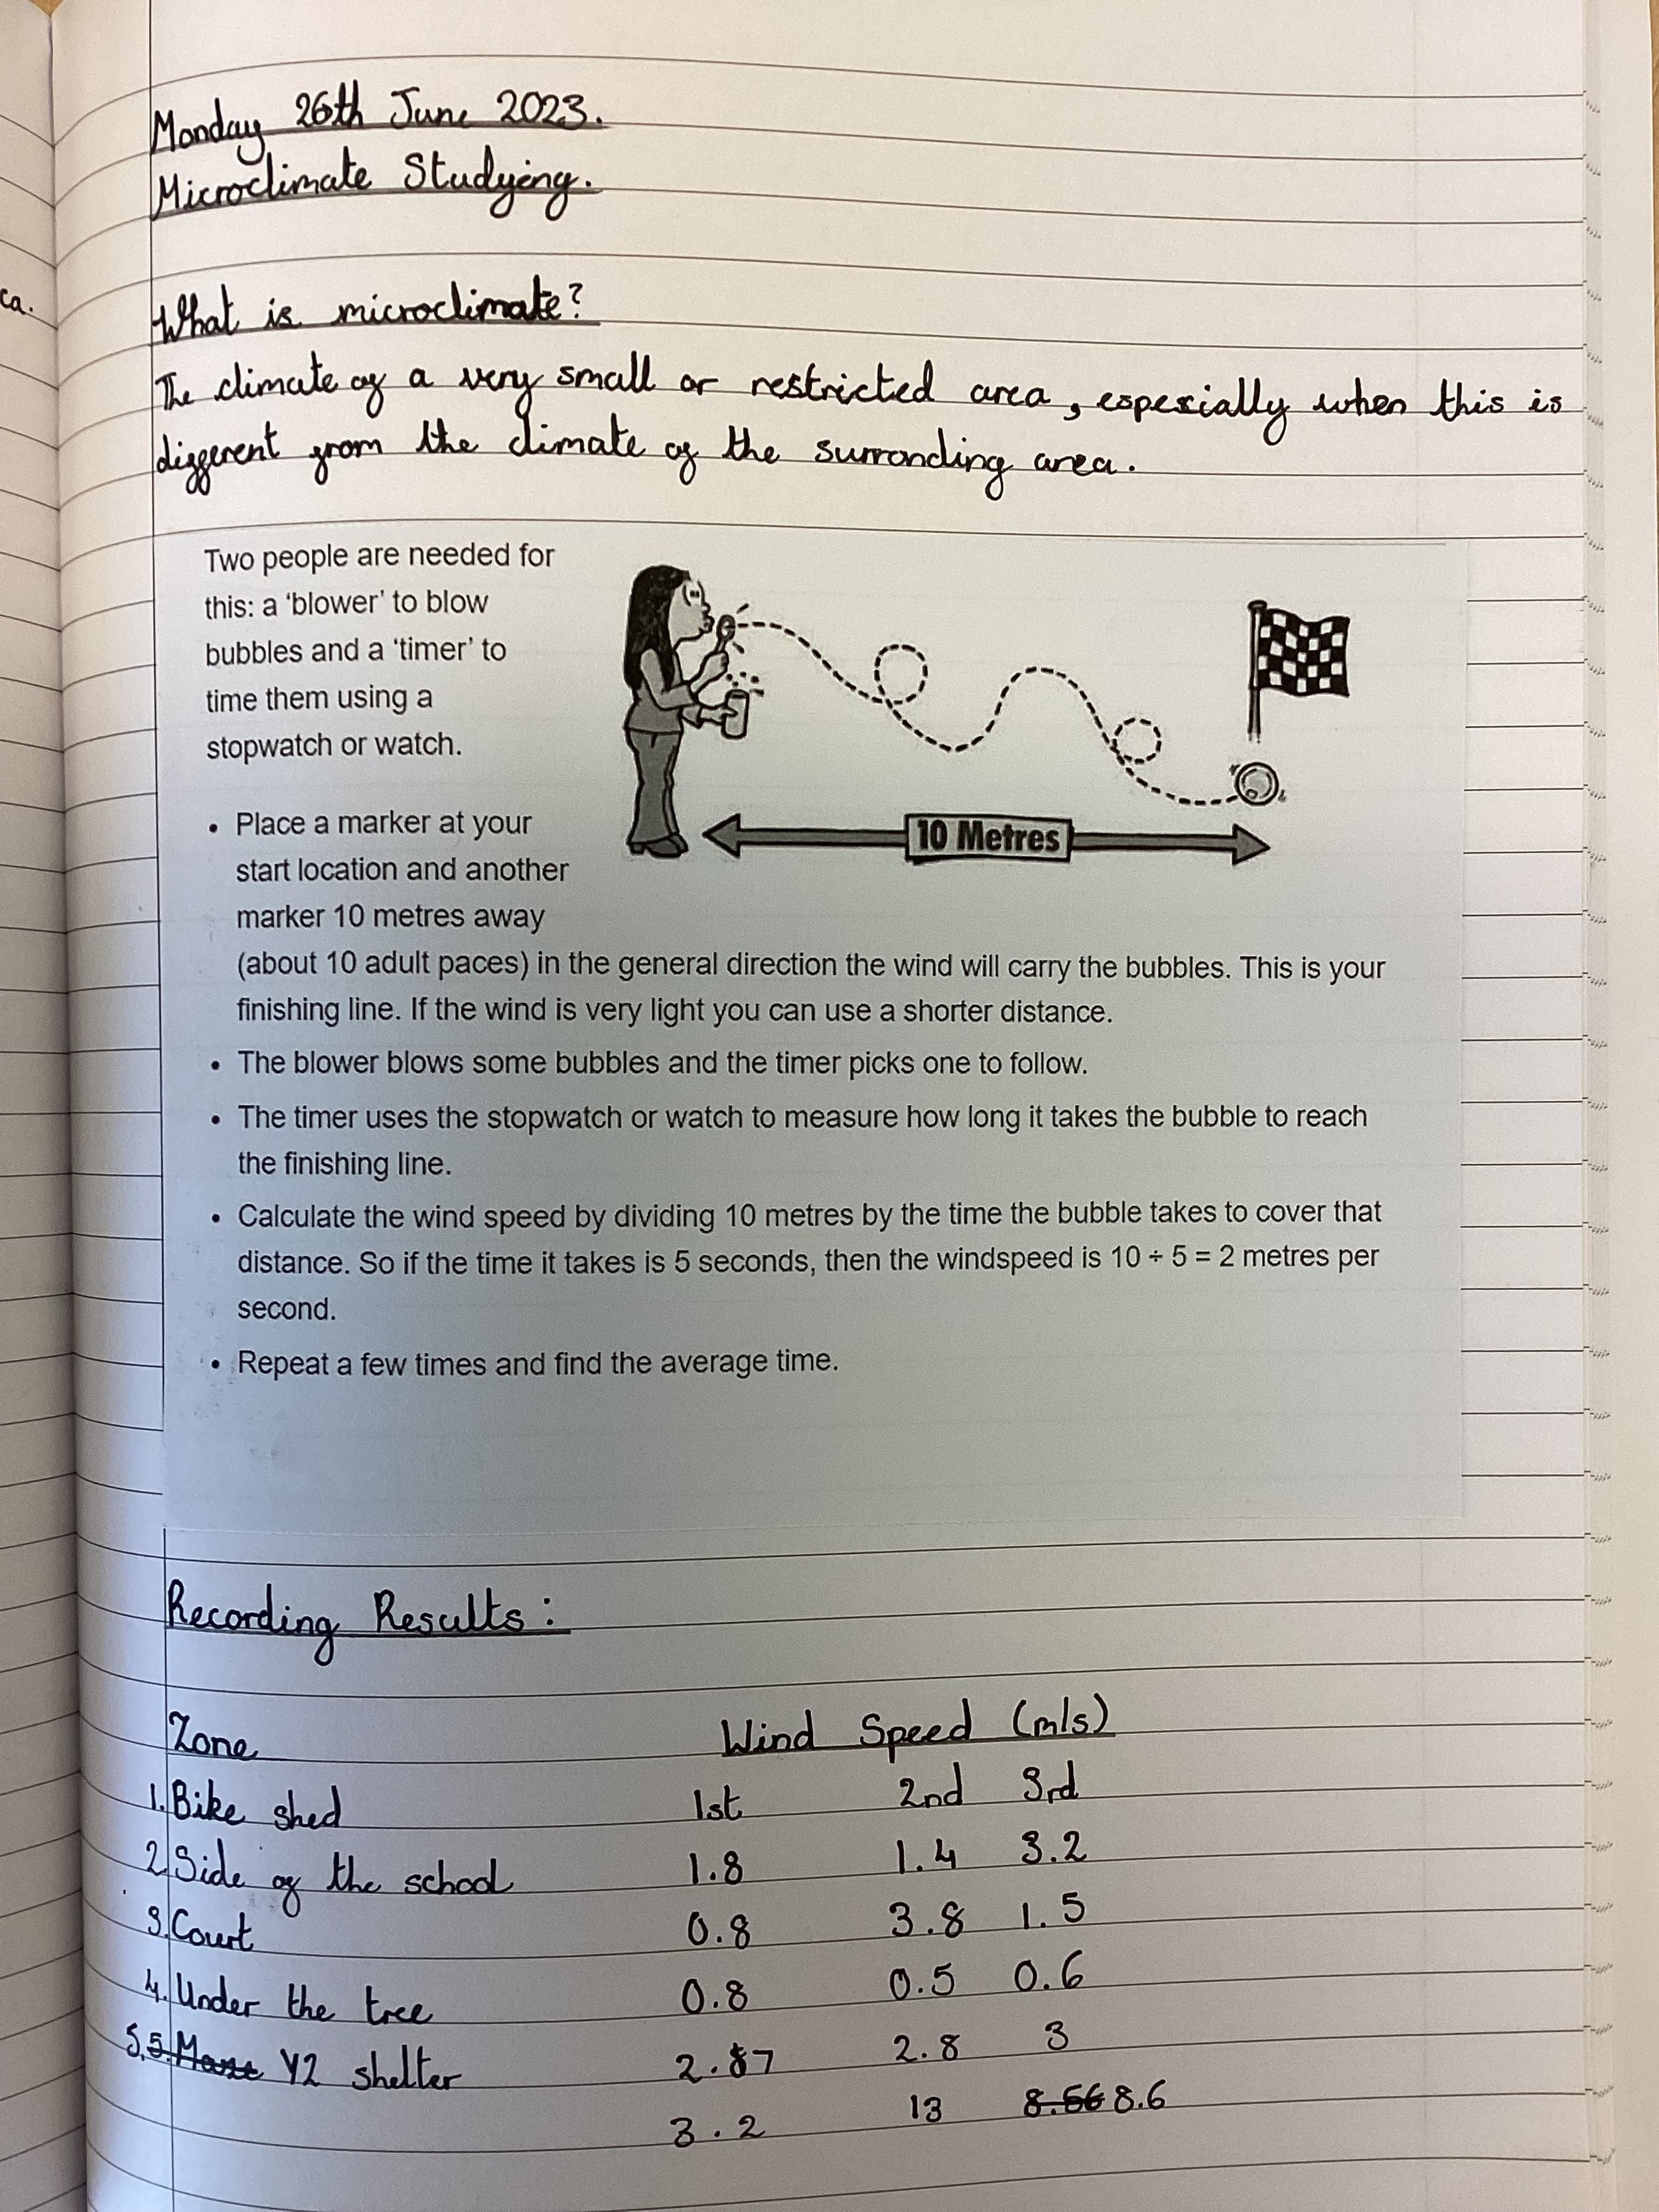 ca.
Monday 26th June 2023.
Microclimate Studying.
What is microclimate?
The climate of a very small or restricted area, espexially when this is
different from the climate of the surronding area.
Two people are needed for
this: a ‘blower’ to blow
bubbles and a ‘timer’ to
time them using a
stopwatch or watch.
• Place a marker at your
start location and another
marker 10 metres away
(about 10 adult paces) in the general direction the wind will carry the bubbles. This is your
finishing line. If the wind is very light you can use a shorter distance.
10 Metres
• The blower blows some bubbles and the timer picks one to follow.
• The timer uses the stopwatch or watch to measure how long it takes the bubble to reach
the finishing line.
• Calculate the wind speed by dividing 10 metres by the time the bubble takes to cover that
distance. So if the time it takes is 5 seconds, then the windspeed is 10 ÷ 5 = 2 metres per
second.
• Repeat a few times and find the average time.
Recording Results:
Zone Wind Speed (m/s)
1. Bike shed 1st 2nd 3rd
2. Side of the school 1.8 1.4 3.2
3. Court 0.8 3.8 1.5
4. Under the tree 0.8 0.5 0.6
5. 5. Y2 shelter 2.7 2.8 3
3.2 13 8.56 8.6